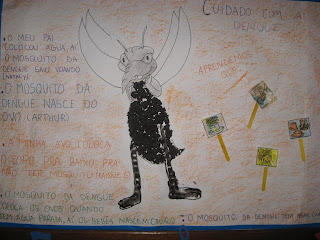 CUIDADO COM A
DENGUE
APRENDEMOS
QUE:
. O MEU PAI
COLOCOU ÁGUA, AÍ
O MOSQUITO DA
DENGUE SAIU VOANDO
. O MOSQUITO DA
DENGUE NASCE DO
OVO (ARTHUR)
. A MINHA AVÓ COLOCA
O COPO PRA BAIXO PRA
NÃO TER MOSQUITO
. O MOSQUITO DA DENGUE
COLOCA OS OVOS QUANDO
TEM ÁGUA PARADA, AÍ OS BEBÊS NASCEM
. O MOSQUITO DA DENGUE TEM